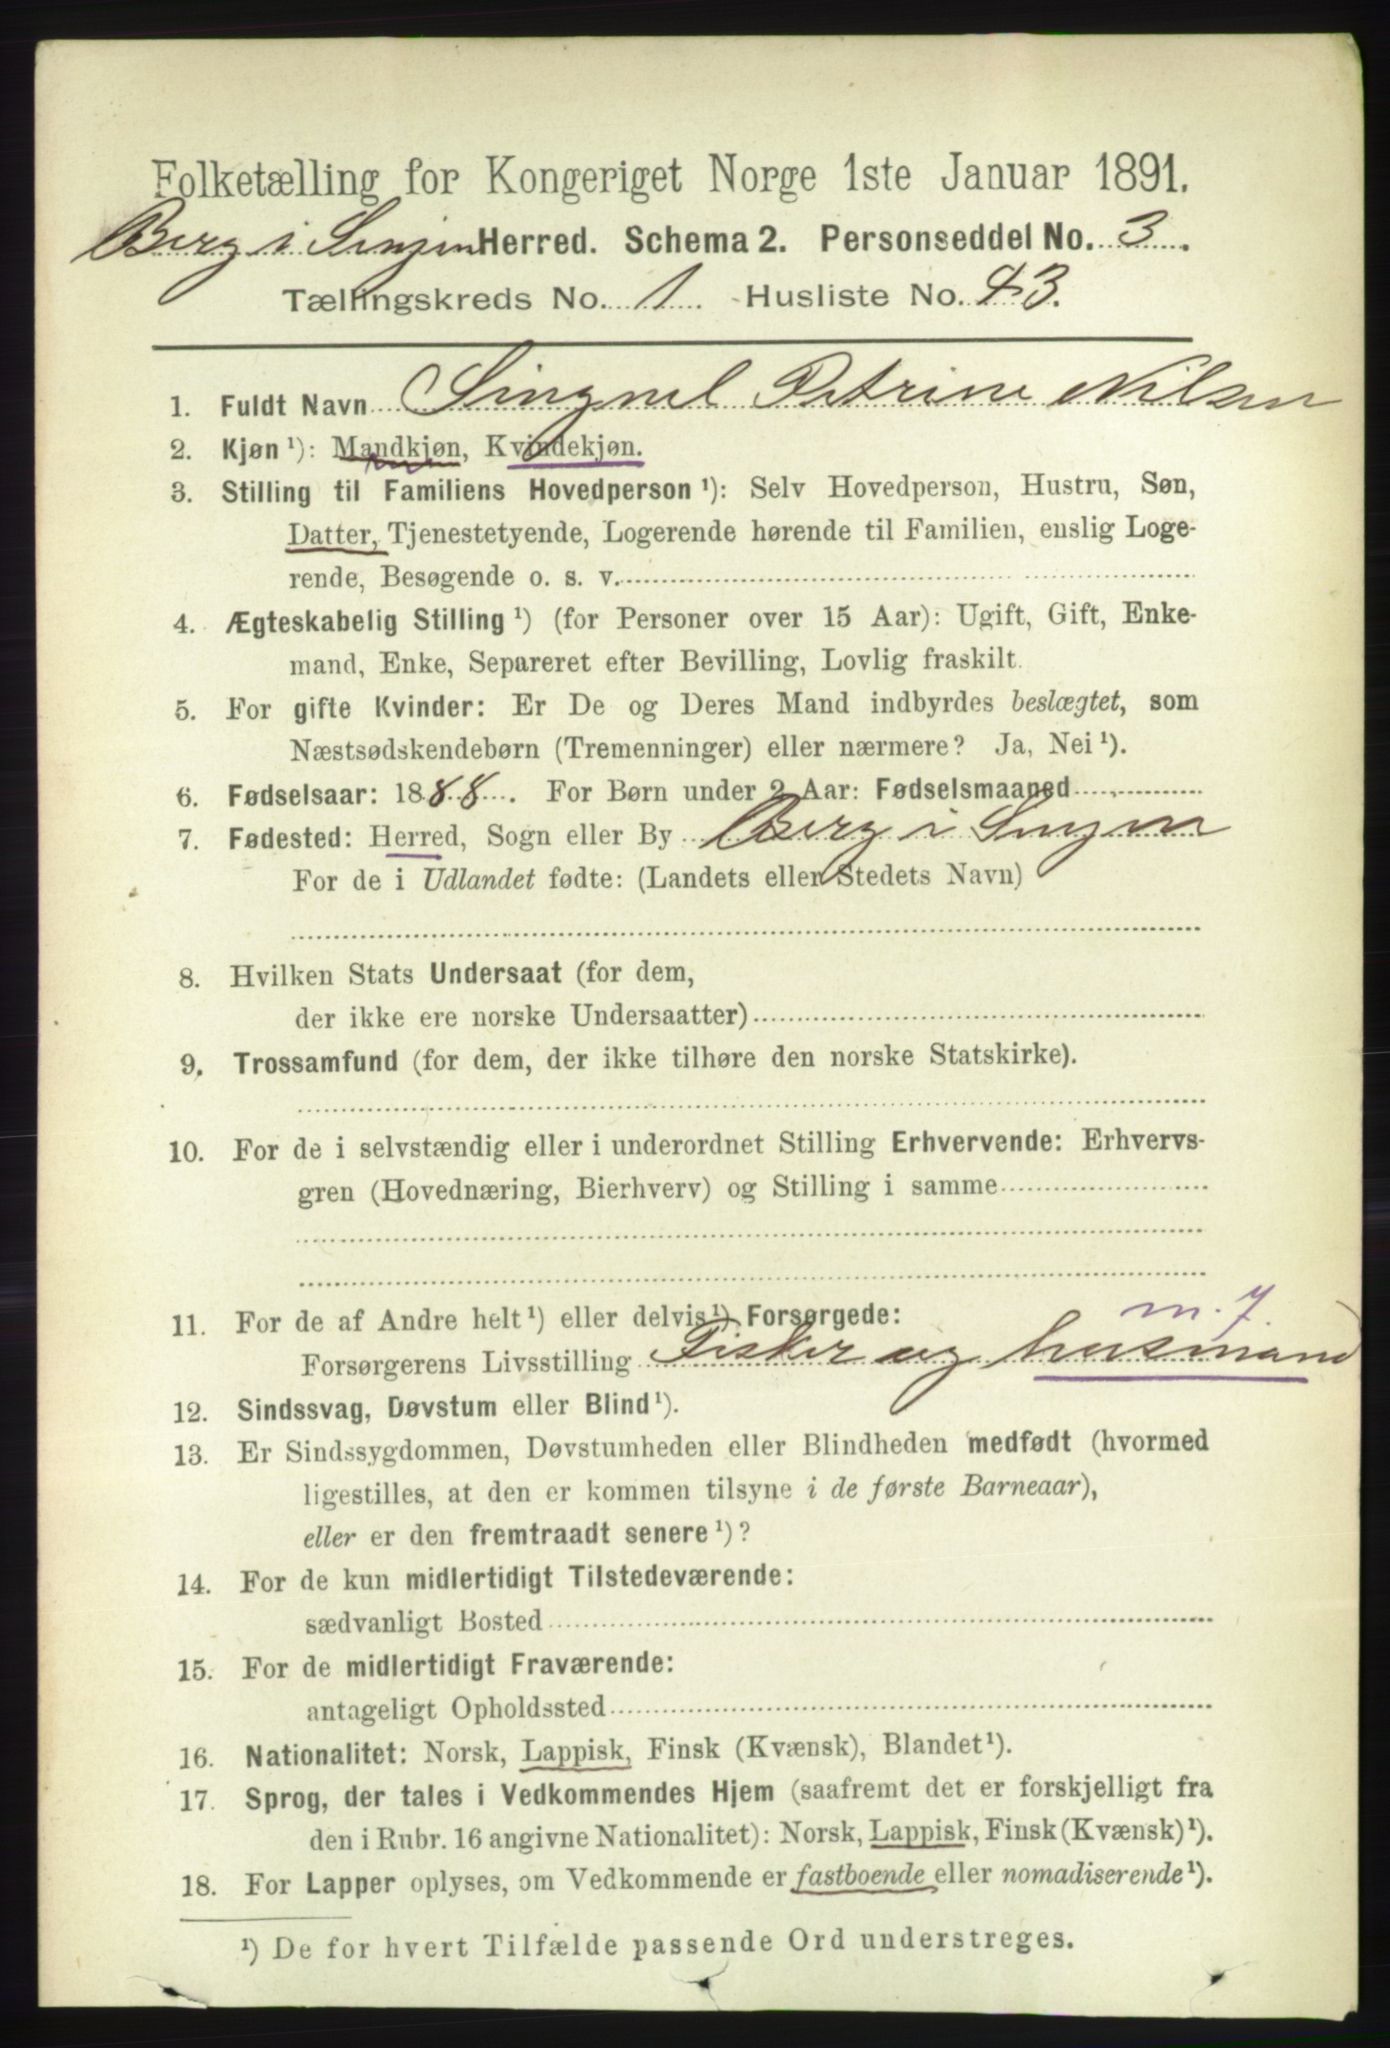 Folketælling for Kongeriget Norge 1ste Januar 1891.
Berg i Senjen Herred. Schema 2. Personseddel No. 3.
Tællingskreds No. 1. Husliste No. 43.
1. Fuldt Navn Singnel Petrine Nilsen
2. Kjøn ¹): Mandkjøn, Kvindekjøn.
3. Stilling til Familiens Hovedperson ¹): Selv Hovedperson, Hustru, Søn,
Datter, Tjenestetyende, Logerende hørende til Familien, enslig Loge-
rende, Besøgende o. s. v.
4. Ægteskabelig Stilling ¹) (for Personer over 15 Aar): Ugift, Gift, Enke-
mand, Enke, Separeret efter Bevilling, Lovlig fraskilt.
5. For gifte Kvinder: Er De og Deres Mand indbyrdes beslægtet, som
Næstsødskendebørn (Tremenninger) eller nærmere? Ja, Nei ¹).
6. Fødselsaar: 1888. For Børn under 2 Aar: Fødselsmaaned
7. Fødested: Herred, Sogn eller By Berg i Senjen
For de i Udlandet fødte: (Landets eller Stedets Navn)
8. Hvilken Stats Undersaat (for dem,
der ikke ere norske Undersaatter)
9. Trossamfund (for dem, der ikke tilhøre den norske Statskirke).
10. For de i selvstændig eller i underordnet Stilling Erhvervende: Erhvervs-
gren (Hovednæring, Bierhverv) og Stilling i samme
11. For de af Andre helt ¹) eller delvis ¹) Forsørgede: m. 7.
Forsørgerens Livsstilling Fisker og husmand
12. Sindssvag, Døvstum eller Blind ¹).
13. Er Sindssygdommen, Døvstumheden eller Blindheden medfødt (hvormed
ligestilles, at den er kommen tilsyne i de første Barneaar),
eller er den fremtraadt senere ¹)?
14. For de kun midlertidigt Tilstedeværende:
sædvanligt Bosted
15. For de midlertidigt Fraværende:
antageligt Opholdssted
16. Nationalitet: Norsk, Lappisk, Finsk (Kvænsk), Blandet ¹).
17. Sprog, der tales i Vedkommendes Hjem (saafremt det er forskjelligt fra
den i Rubr. 16 angivne Nationalitet): Norsk, Lappisk, Finsk (Kvænsk) ¹).
18. For Lapper oplyses, om Vedkommende er fastboende eller nomadiserende ¹).
¹) De for hvert Tilfælde passende Ord understreges.